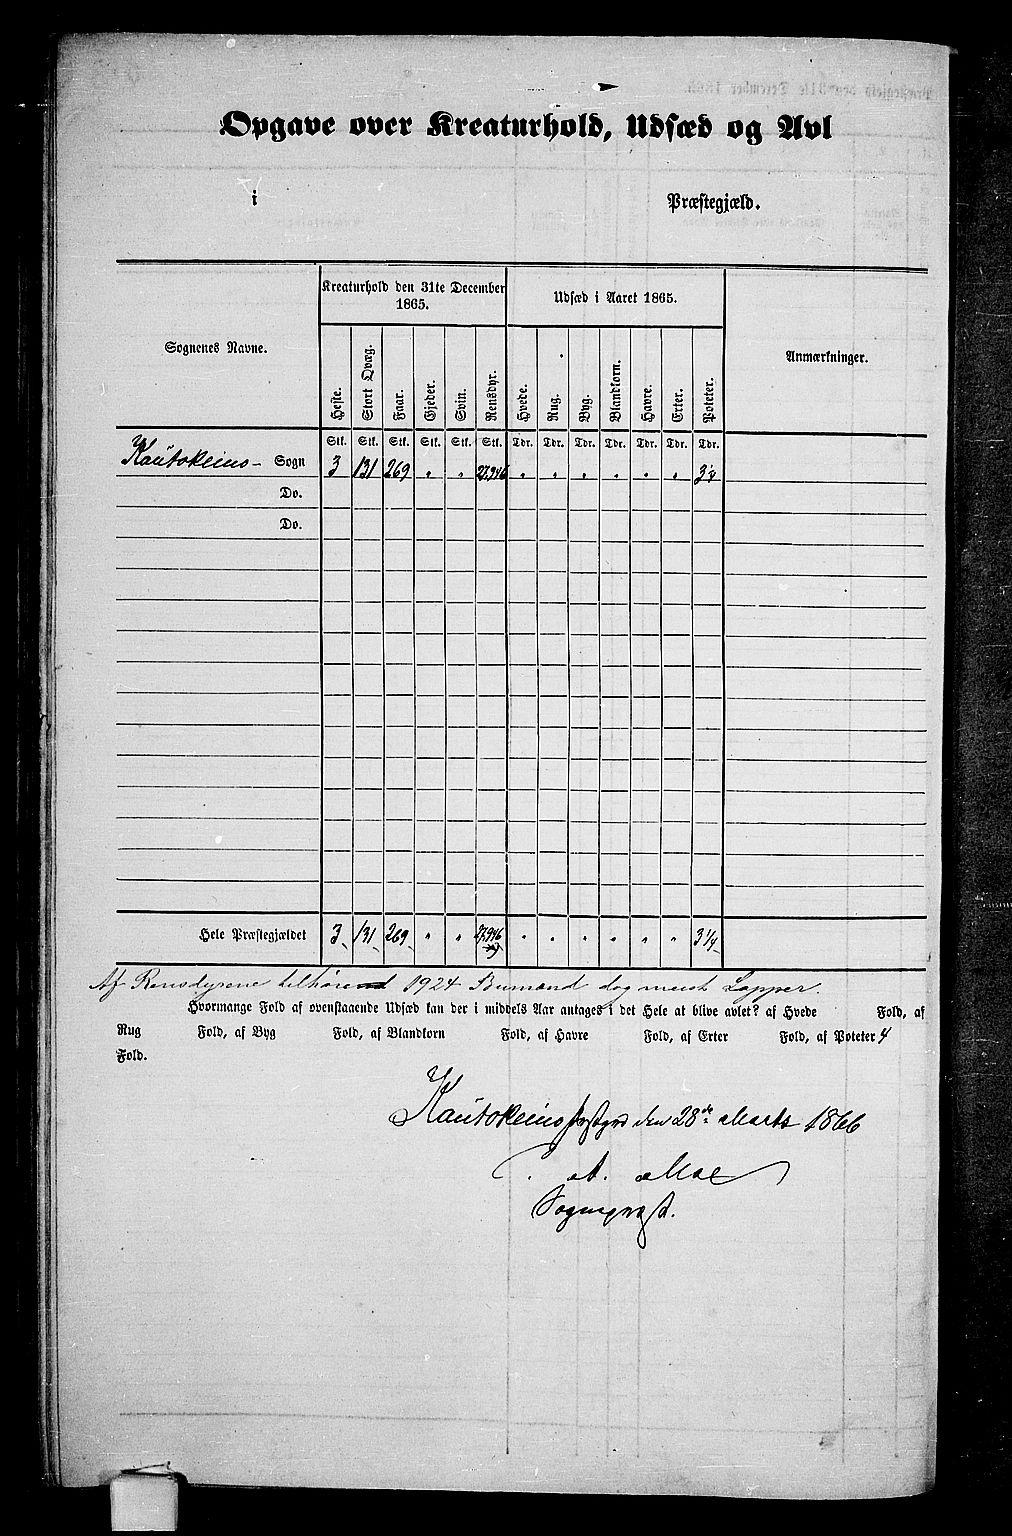 Opgave over Kreaturhold, Udsæd og Avl
i Præstegjæld.
Sognenes Navne. Kreaturhold den 31te December 1865. Udsæd i Aaret 1865. Anmærkninger.
Heste. Stort Qvæg. Faar. Gjeder. Svin. Rensdyr. Hvede. Rug. Byg. Blandkorn. Havre. Erter. Poteter.
Stk. Stk. Stk. Stk. Stk. Stk. Tdr. Tdr. Tdr. Tdr. Tdr. Tdr. Tdr.
Kautokeino- Sogn 3 131 269 " " 27,946 " " " " " " 3¼
Do.
Do.
Hele Præstegjældet 3 131 269 " " 27,946 " " " " " " 3 1/4
Af Rensdyrene tilhørend 1924 Bumænd dog mest Lapper.
Hvormange Fold af ovenstaaende Udsæd kan der i middels Aar antages i det Hele at blive avlet? af Hvede Fold, af
Rug Fold, af Byg Fold, af Blandkorn Fold, af Havre Fold, af Erter Fold, af Poteter 4
Fold.
Kautokeino den 28de Marts 1866
A. Moe
Sognepræst.